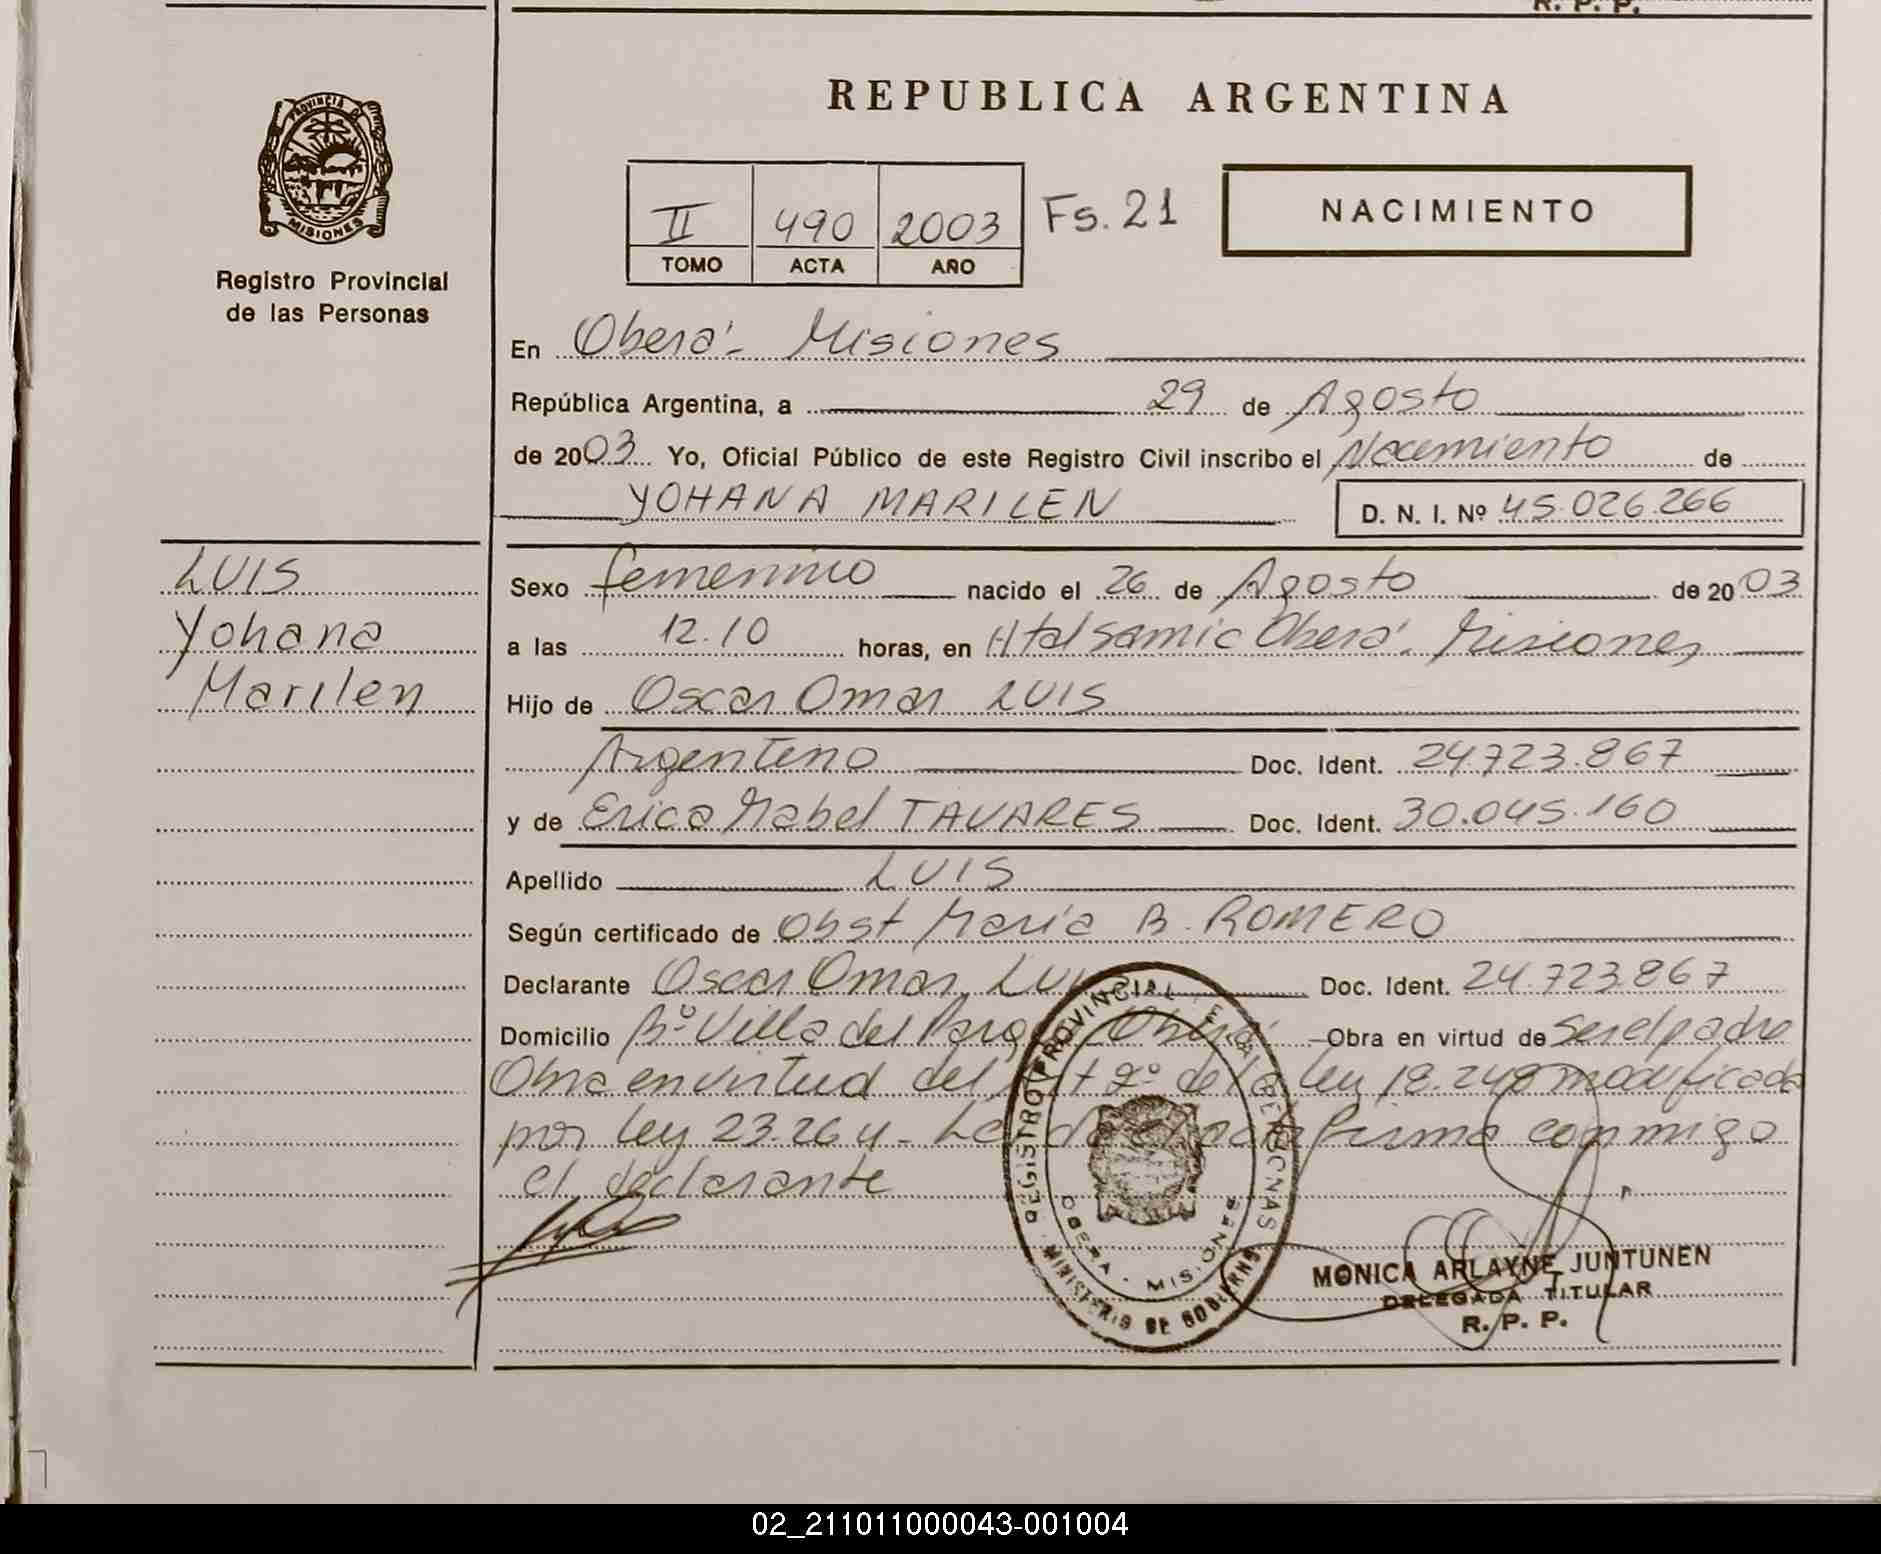 R. P. P.
PROVINCIA DE
MISIONES
Registro Provincial
de las Personas
REPUBLICA ARGENTINA
II 490 2003 Fs. 21
TOMO ACTA AÑO
NACIMIENTO
En Oberá - Misiones
República Argentina, a 29 de Agosto
de 2003 Yo, Oficial Público de este Registro Civil inscribo el Nacimiento de
YOHANA MARILEN D. N. I. Nº 45.026.266
LUIS
Yohana
Marilen
Sexo femenino nacido el 26 de Agosto de 2003
a las 12.10 horas, en Htal Samic Oberá. Misiones
Hijo de Oscar Omar LUIS
Argentino Doc. Ident. 24.723.867
y de Erica Mabel TAVARES Doc. Ident. 30.045.160
Apellido LUIS
Según certificado de Obst María B. ROMERO
Declarante Oscar Omar LUIS Doc. Ident. 24.723.867
Domicilio Bº Villa del Parq Oberá Obra en virtud de Ser el padre
Obra en virtud del Art 2º de la ley 18.248 modificada
por ley 23.264 - Leída el acta firma conmigo
el declarante
REGISTRO PROVINCIAL DE LAS PERSONAS
OBERA - MISIONES
MINISTERIO DE GOBIERNO
MONICA ARLAYNE JUNTUNEN
DELEGADA TITULAR
R. P. P.
02_211011000043-001004